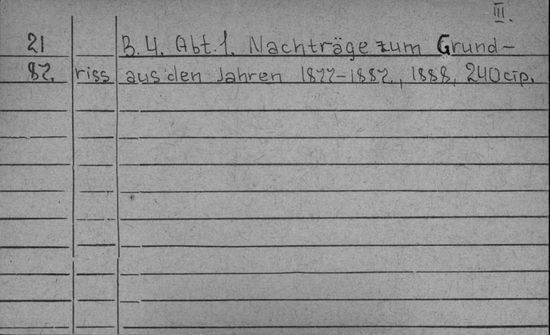 III.
21 B. 4. Abt. 1. Nachträge zum Grund-
87. riss aus den Jahren 1877-1887, 1888, 240 стр.